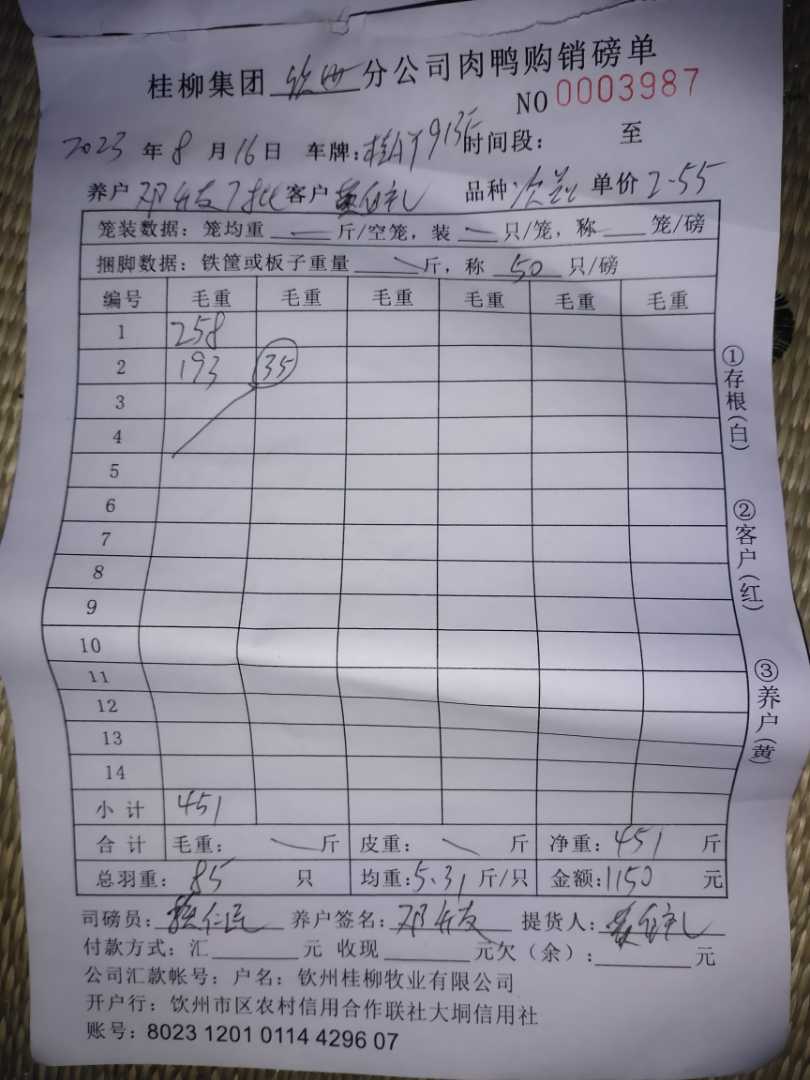 桂柳集团 钦州 分公司肉鸭购销磅单
NO 0003987
2023 年 8 月 16 日 车牌: 时间段: 至
养户 邓 友 客户 品种: 单价 2-55
笼装数据: 笼均重 斤/空笼, 装 只/笼, 称 笼/磅
捆脚数据: 铁筐或板子重量 斤, 称 50 只/磅
编号 毛重 毛重 毛重 毛重 毛重 毛重
1 258
2 193 35
3
4
5
6
7
8
9
10
11
12
13
14
小 计 451
合 计 毛重: 斤 皮重: 斤 净重: 451 斤
总羽重: 85 只 均重: 5.31 斤/只 金额: 1150 元
司磅员: 养户签名: 邓 友 提货人:
付款方式: 汇 元 收现 元欠（余）: 元
公司汇款帐号: 户名: 钦州桂柳牧业有限公司
开户行: 钦州市区农村信用合作联社大垌信用社
账号: 8023 1201 0114 4296 07
①存根(白)
②客户(红)
③养户(黄)